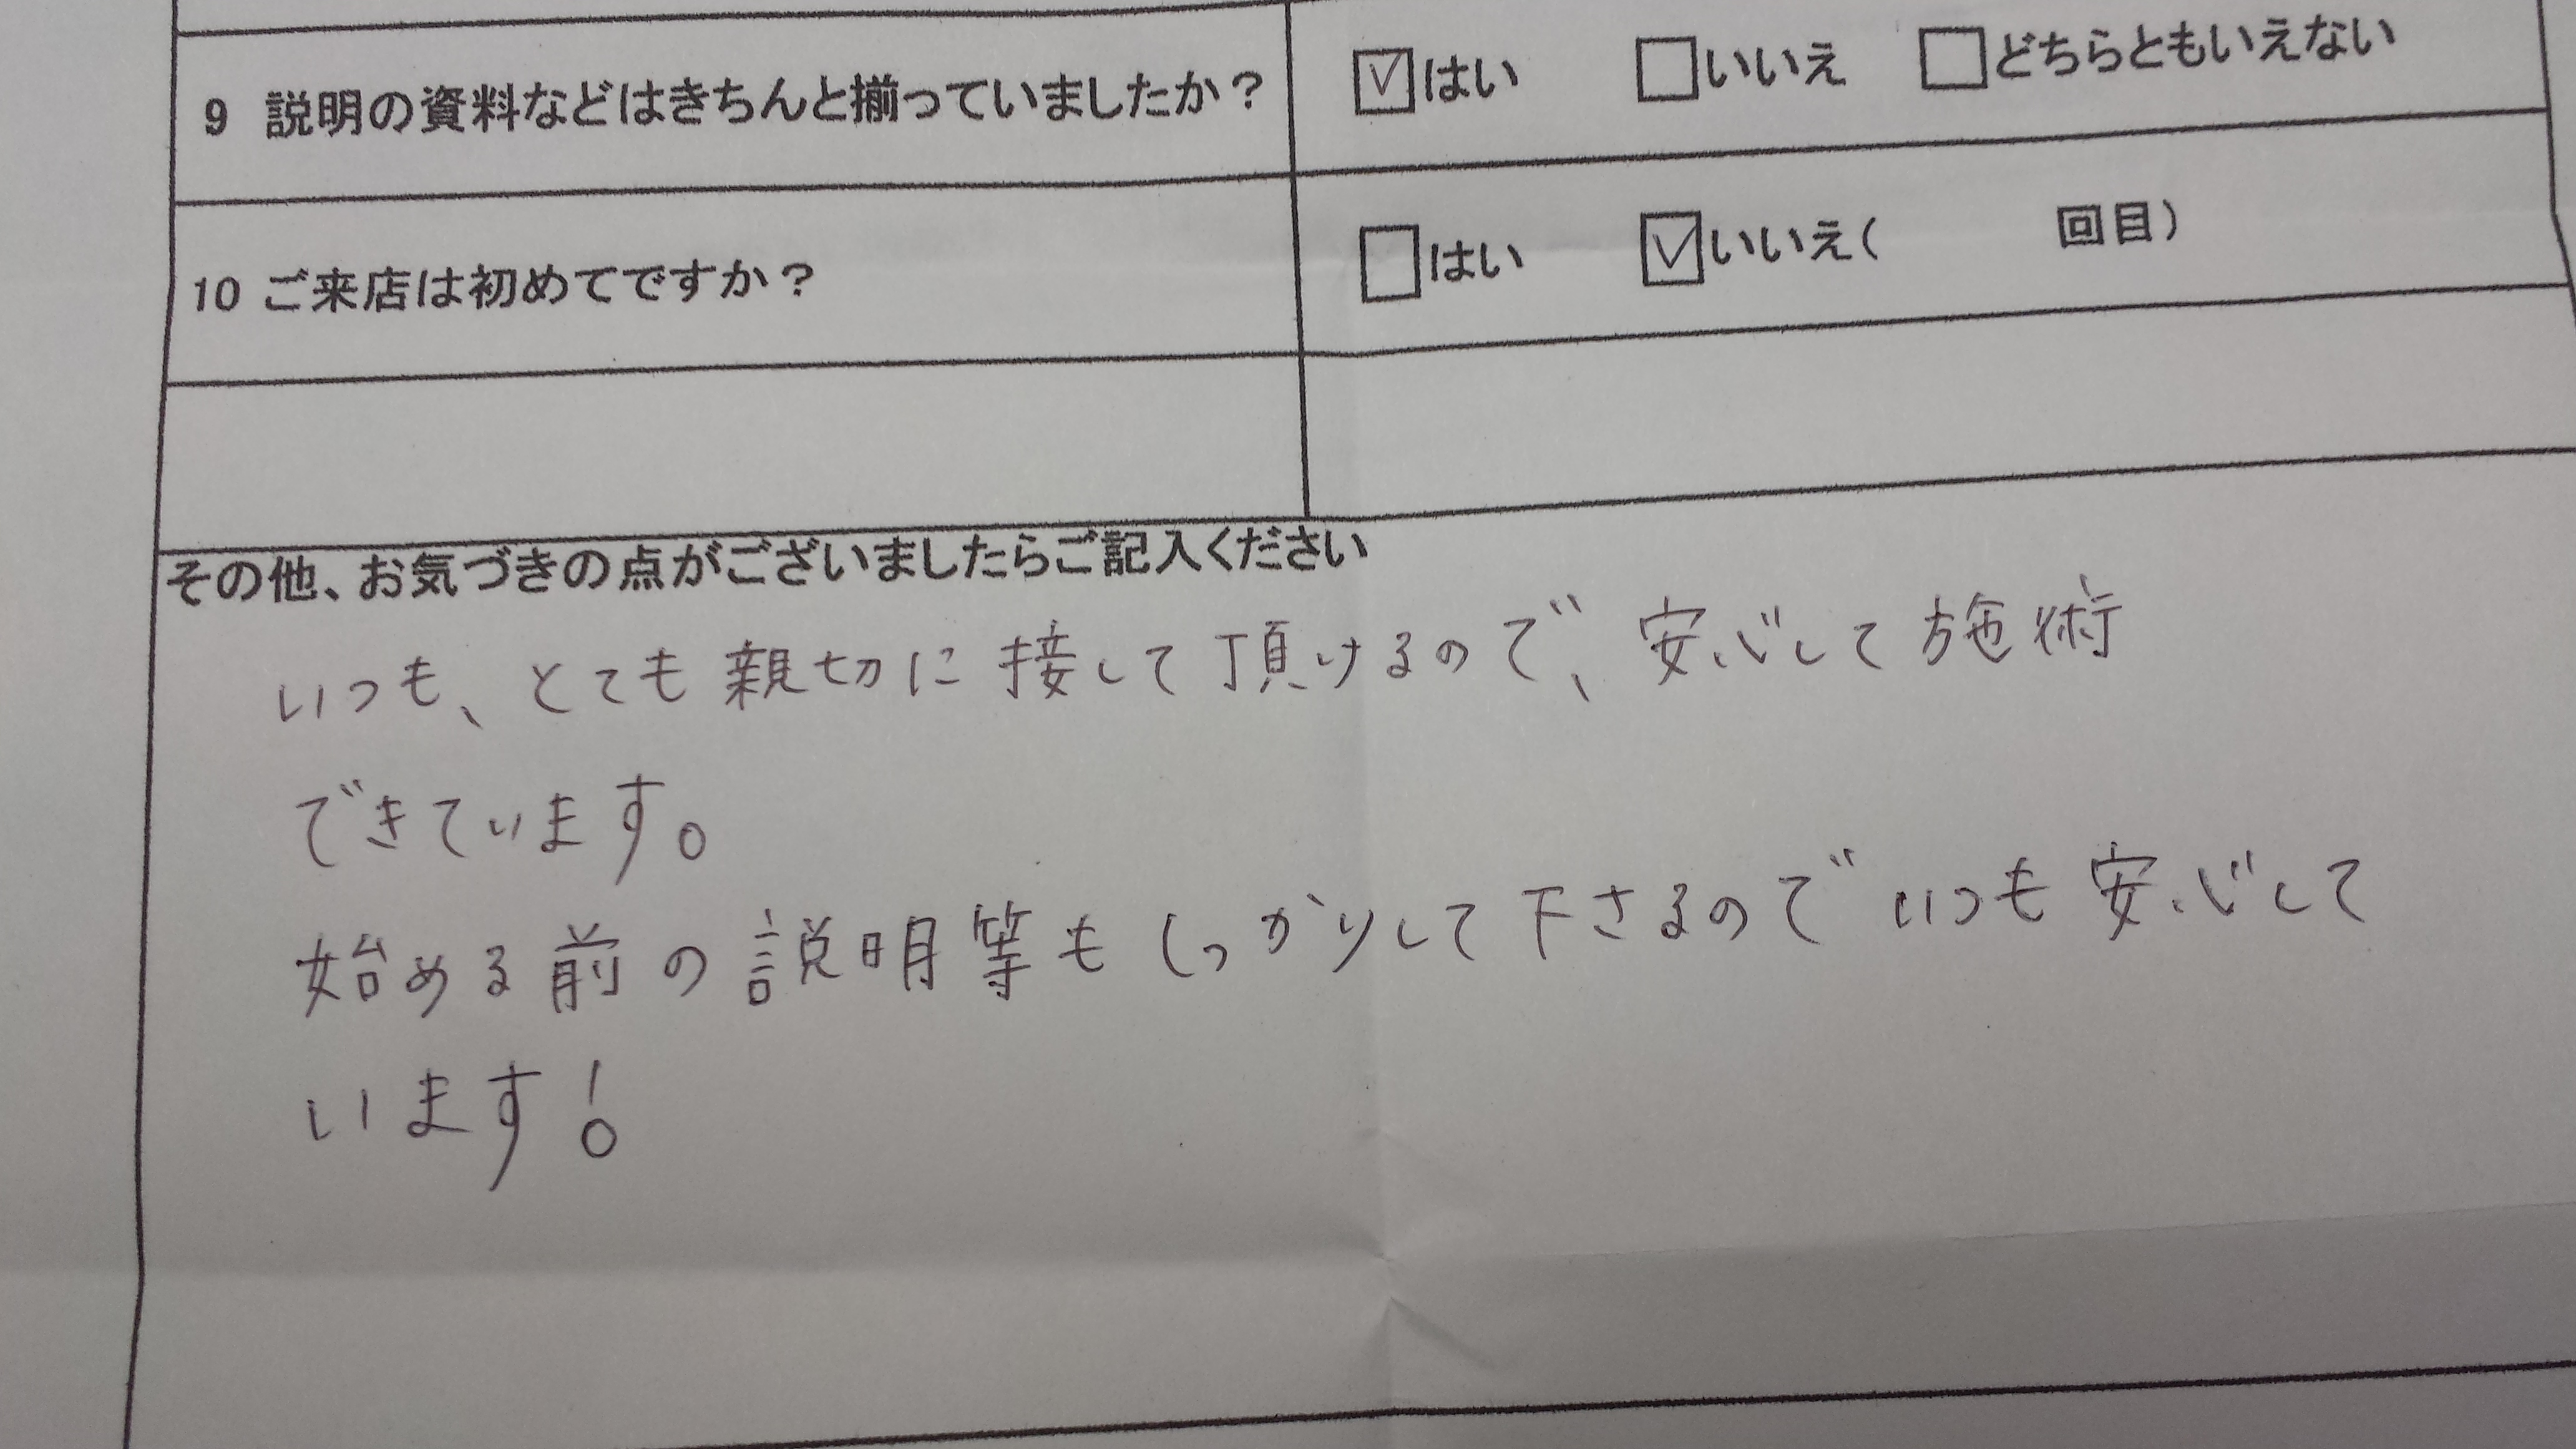 9 説明の資料などはきちんと揃っていましたか？ ☑はい □いいえ □どちらともいえない
10 ご来店は初めてですか？ □はい ☑いいえ( 回目)
その他、お気づきの点がございましたらご記入ください
いつも、とても親切に接して頂けるので、安心して施術
できています。
始める前の説明等もしっかりして下さるのでいつも安心して
います！